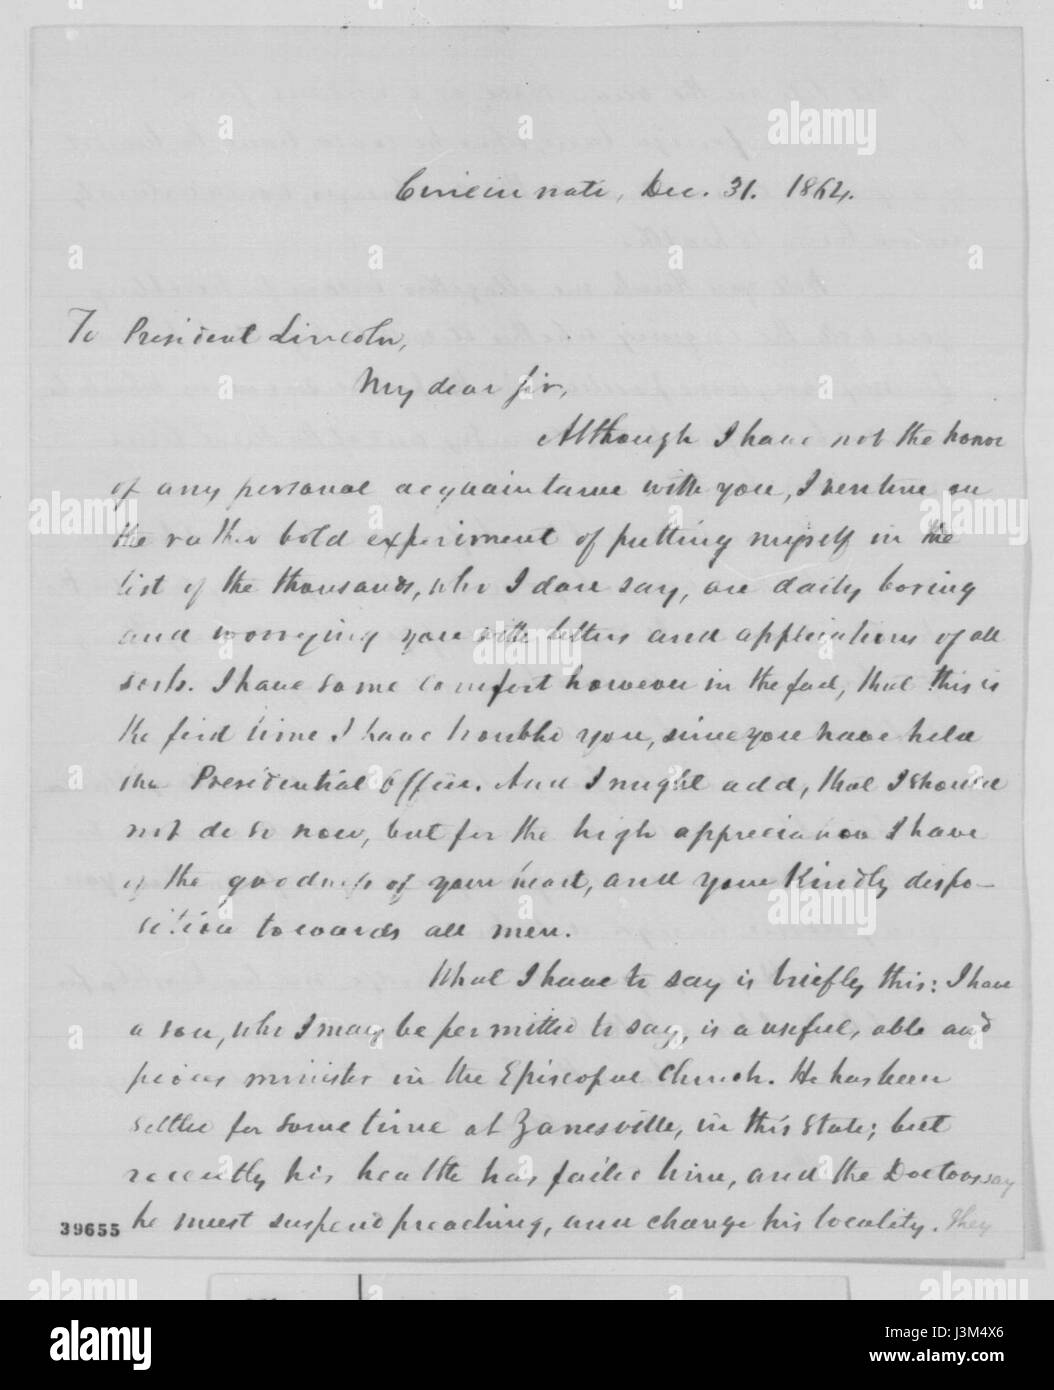 Cincinnati, Dec. 31. 1864.
To President Lincoln,
My dear Sir,
Although I have not the honor
of any personal acquaintance with you, I venture on
the rather bold experiment of putting myself in the
list of the thousands, who I dare say, are daily boring
and worrying you with letters and applications of all
sorts. I have some comfort however in the fact, that this is
the first time I have troubled you, since you have held
the Presidential office. And I might add, that I should
not do so now, but for the high appreciation I have
of the goodness of your heart, and your kindly dispo-
sition towards all men.
What I have to say is briefly this: I have
a son, who I may be permitted to say, is a useful, able and
pious minister in the Episcopal Church. He has been
settled for some time at Zanesville, in this State; but
recently his health has failed him, and the Doctors say
he must suspend preaching, and change his locality. They
39655
alamy
alamy
J3M4X6
www.alamy.com